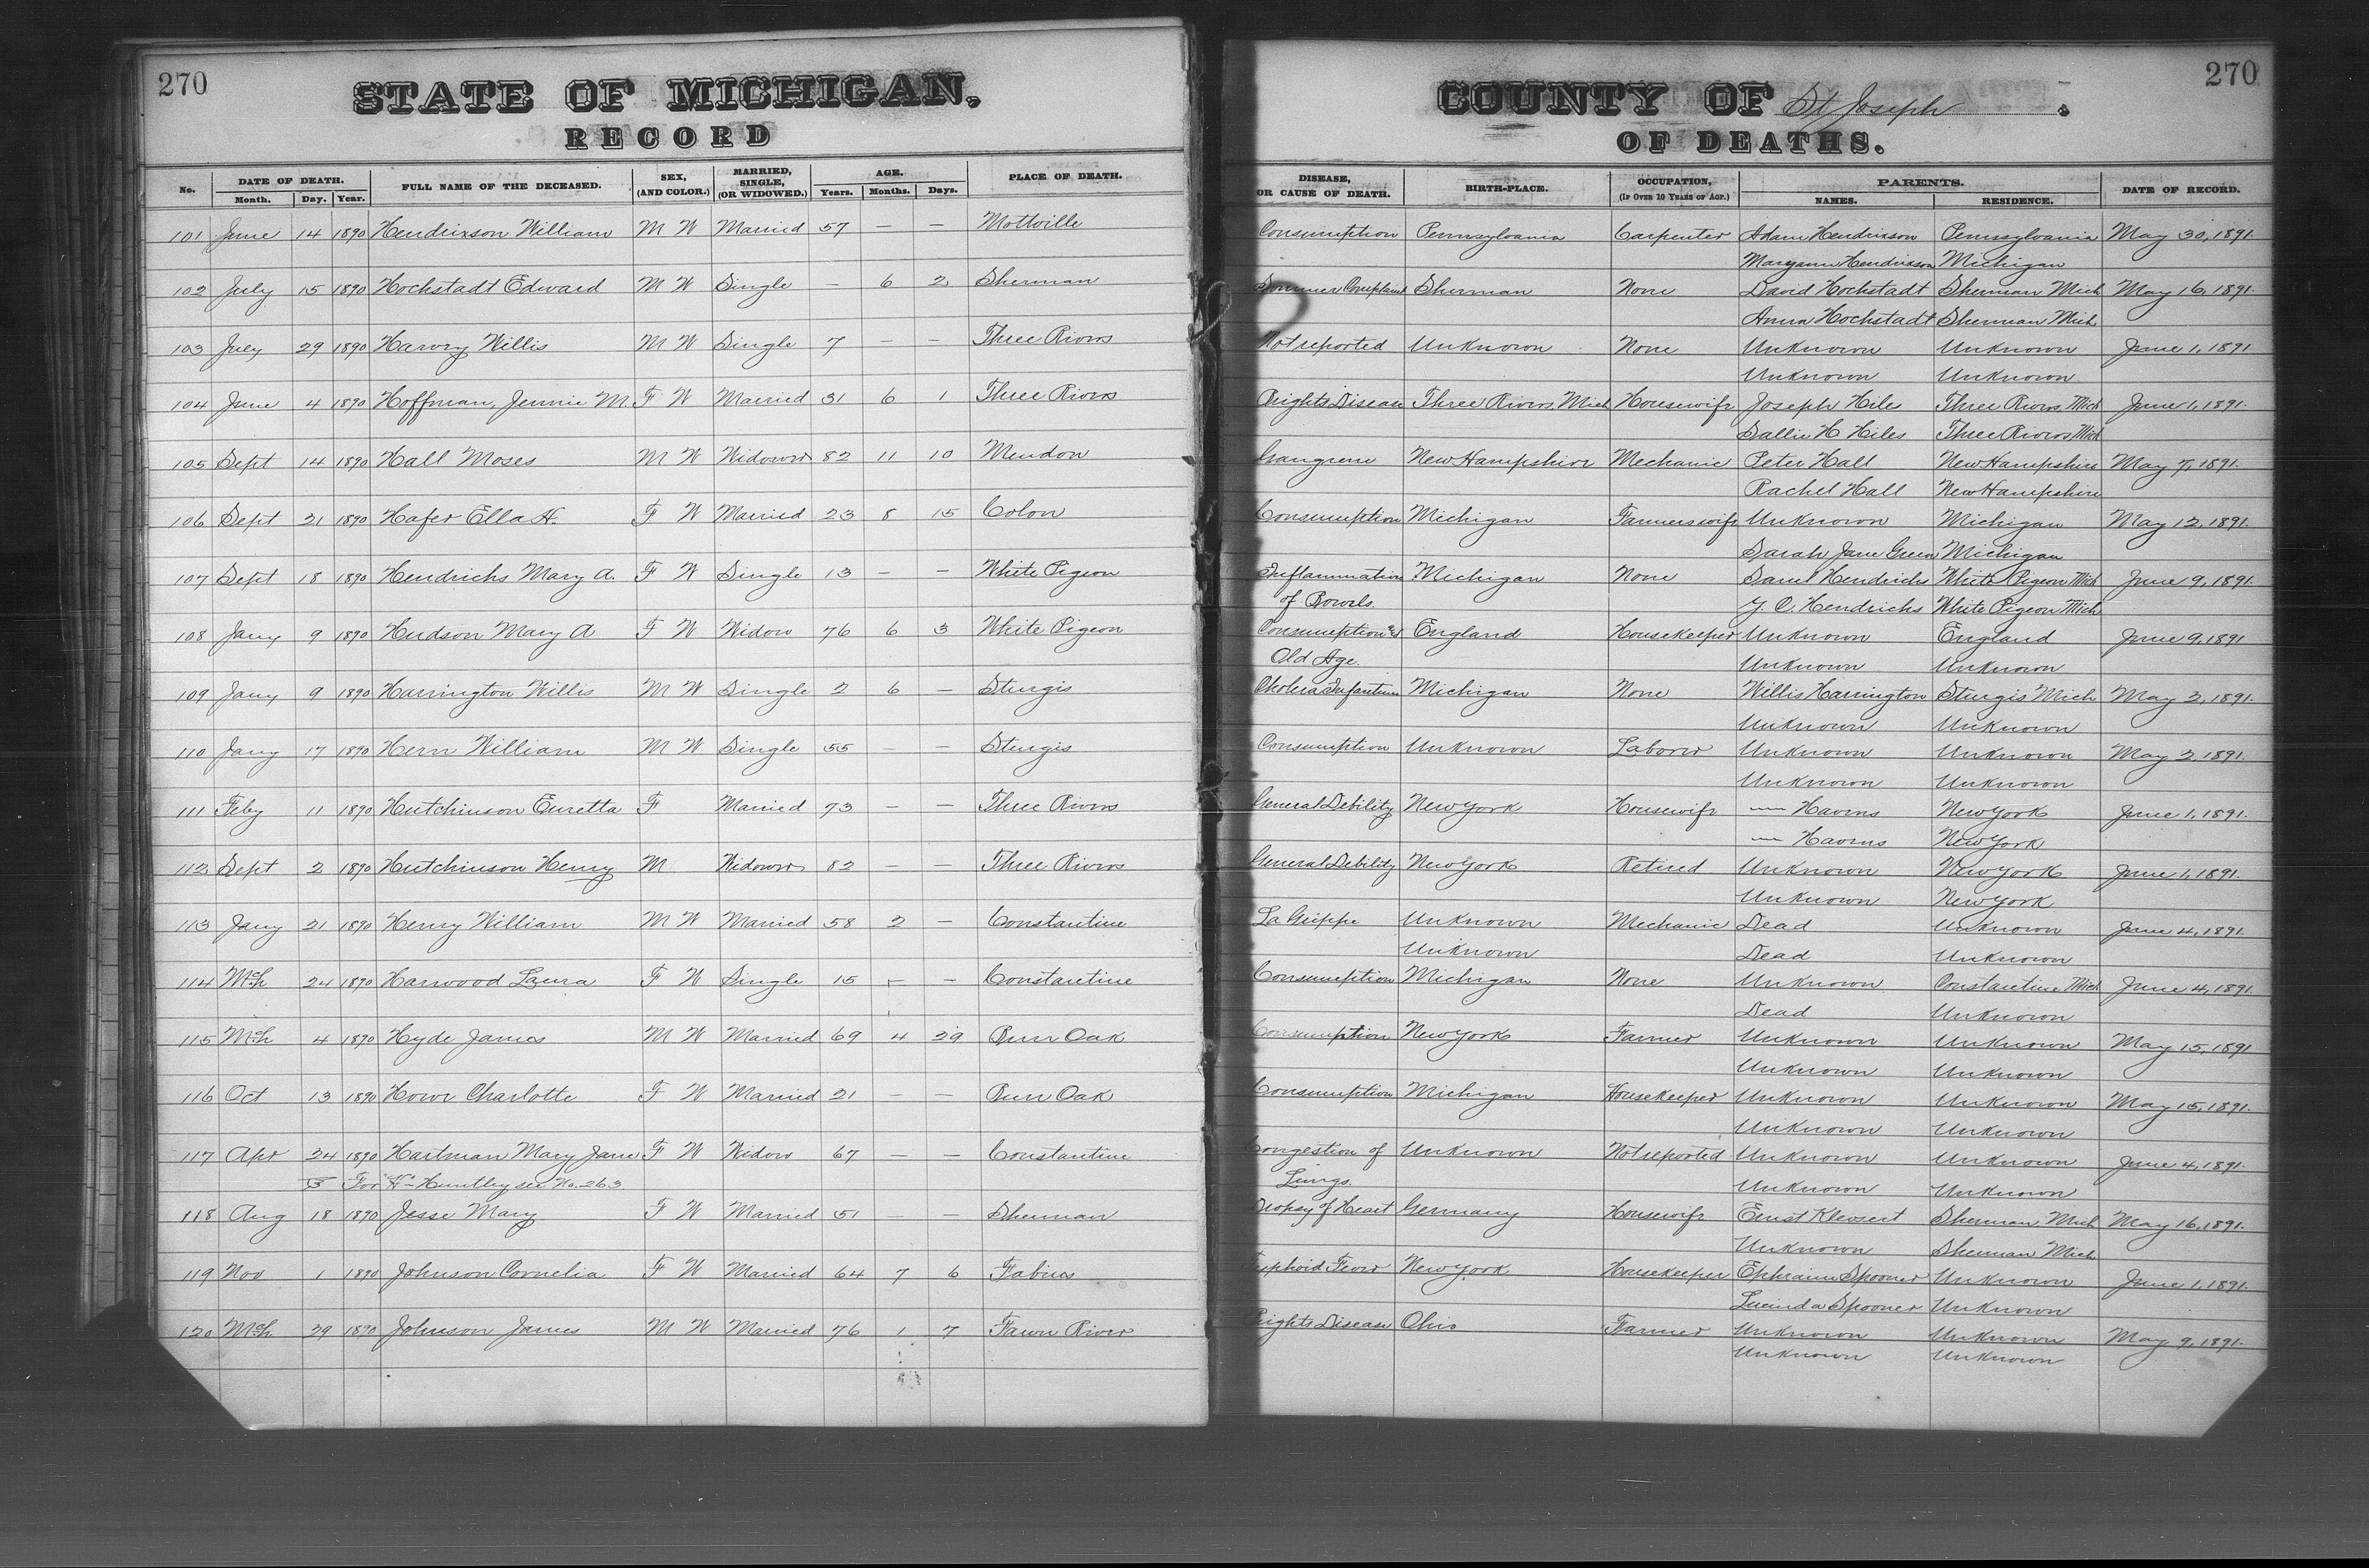 270
STATE OF MICHIGAN,
RECORD
No. DATE OF DEATH. Month. Day. Year. FULL NAME OF THE DECEASED. SEX, (AND COLOR.) MARRIED, SINGLE, (OR WIDOWED.) AGE. Years. Months. Days. PLACE OF DEATH.
101 June 14 1890 Hendrixson William M W Married 57 — — Mottville
102 July 15 1890 Hochstadt Edward M W Single — 6 2 Sherman
103 July 29 1890 Harvey Willis M W Single 7 — — Three Rivers
104 June 4 1890 Hoffman, Jennie M. F W Married 31 6 1 Three Rivers
105 Sept 14 1890 Hall Moses M W Widower 82 11 10 Mendon
106 Sept 21 1890 Hafer Ella H. F W Married 23 8 15 Colon
107 Sept 18 1890 Hendrichs Mary A. F W Single 13 — — White Pigeon
108 Jany 9 1890 Hudson Mary A F W Widow 76 6 3 White Pigeon
109 Jany 9 1890 Harrington Willis M W Single 2 6 — Sturgis
110 Jany 17 1890 Hern William M W Single 55 — — Sturgis
111 Feby 11 1890 Hutchinson Euretta F Married 73 — — Three Rivers
112 Sept 2 1890 Hutchinson Henry M Widower 82 — — Three Rivers
113 Jany 21 1890 Henry William M W Married 58 2 — Constantine
114 Mch 24 1890 Harwood Laura F W Single 15 — — Constantine
115 Mch 4 1890 Hyde James M W Married 69 4 29 Burr Oak
116 Oct 13 1890 Howe Charlotte F W Married 21 — — Burr Oak
117 Apr 24 1890 Hartman Mary Jane F W Widow 67 — — Constantine
For Huntley see No. 263
118 Aug 18 1890 Jesse Mary F W Married 51 — — Sherman
119 Nov 1 1890 Johnson Cornelia F W Married 64 7 6 Fabius
120 Mch 29 1890 Johnson James M W Married 76 1 7 Fawn River
270
COUNTY OF St Joseph.
OF DEATHS.
DISEASE, OR CAUSE OF DEATH. BIRTH-PLACE. OCCUPATION, (IF OVER 10 YEARS OF AGE.) PARENTS. NAMES. RESIDENCE. DATE OF RECORD.
Consumption Pennsylvania Carpenter Adam Hendrixson Pennsylvania May 30, 1891.
Maryann Hendrixson Michigan
Summer Complaint Sherman None David Hochstadt Sherman Mich May 16, 1891.
Anna Hochstadt Sherman Mich
Not reported Unknown None Unknown Unknown June 1, 1891
Unknown Unknown
Brights Disease Three Rivers, Mich Housewife Joseph Hiles Three Rivers, Mich June 1, 1891.
Sallie H Hiles Three Rivers Mich
Gangrene New Hampshire Mechanic Peter Hall New Hampshire May 7, 1891.
Rachel Hall New Hampshire
Consumption Michigan Farmers wife Unknown Michigan May 12, 1891.
Sarah Jane Green Michigan
Inflammation Michigan None Saml Hendrichs White Pigeon Mich June 9, 1891.
of Bowels. Y. C. Hendrichs White Pigeon Mich
Consumption & England Housekeeper Unknown England June 9, 1891
Old Age. Unknown Unknown
Cholera Infantum Michigan None Willis Harrington Sturgis Mich May 2, 1891.
Unknown Unknown
Consumption Unknown Laborer Unknown Unknown May 2, 1891.
Unknown Unknown
General Debility New York Housewife — Havens New York June 1, 1891.
— Havens New York
General Debility New York Retired Unknown New York June 1, 1891.
Unknown New York
La Grippe Unknown Mechanic Dead Unknown June 4, 1891.
Unknown Dead Unknown
Consumption Michigan None Unknown Constantine Mich June 4, 1891.
Dead Unknown
Consumption New York Farmer Unknown Unknown May 15, 1891
Unknown Unknown
Consumption Michigan Housekeeper Unknown Unknown May 15, 1891.
Unknown Unknown
Congestion of Unknown Not reported Unknown Unknown June 4, 1891.
Lungs. Unknown Unknown
Dropsy of Heart Germany Housewife Ernst Sherman, Mich May 16, 1891.
Unknown Sherman Mich
Typhoid Fever New York Housekeeper Ephraim Spooner Unknown June 1, 1891.
Lucinda Spooner Unknown
Brights Disease Ohio Farmer Unknown Unknown May 9, 1891.
Unknown Unknown